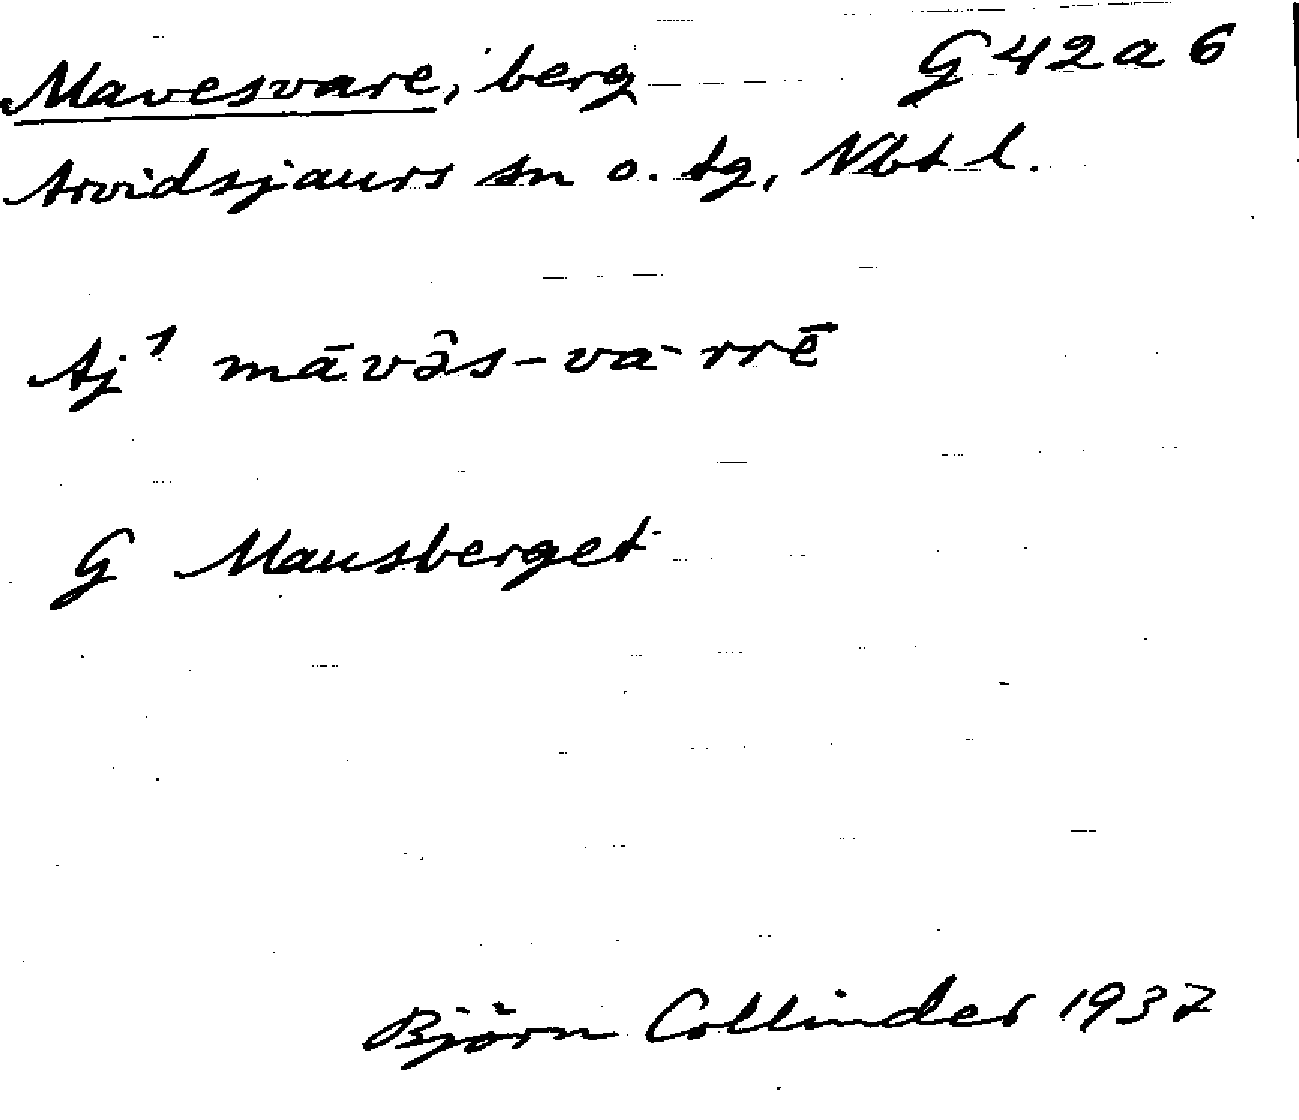 Mavesvare, berg G 42 a 6
Arvidsjaurs sn o. tg, Nbt l.
Aj¹ māvə̑s-va-rrē
G Mausberget
Björn Collinder 1937